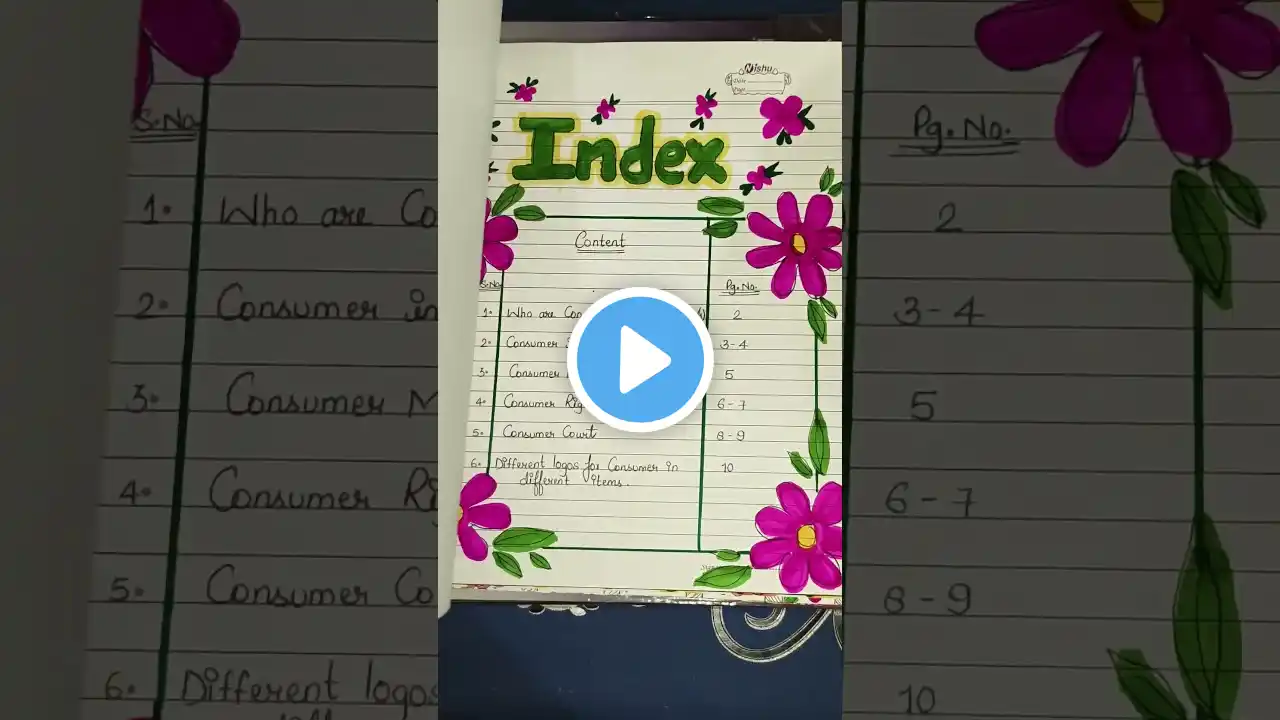 Nishu
Date
Page
Index
Content
S.No. Pg. No.
1. Who are 2
2. Consumer 3-4
3. Consumer 5
4. Consumer 6-7
5. Consumer Court 8-9
6. Different logos for Consumer in 10
different items.